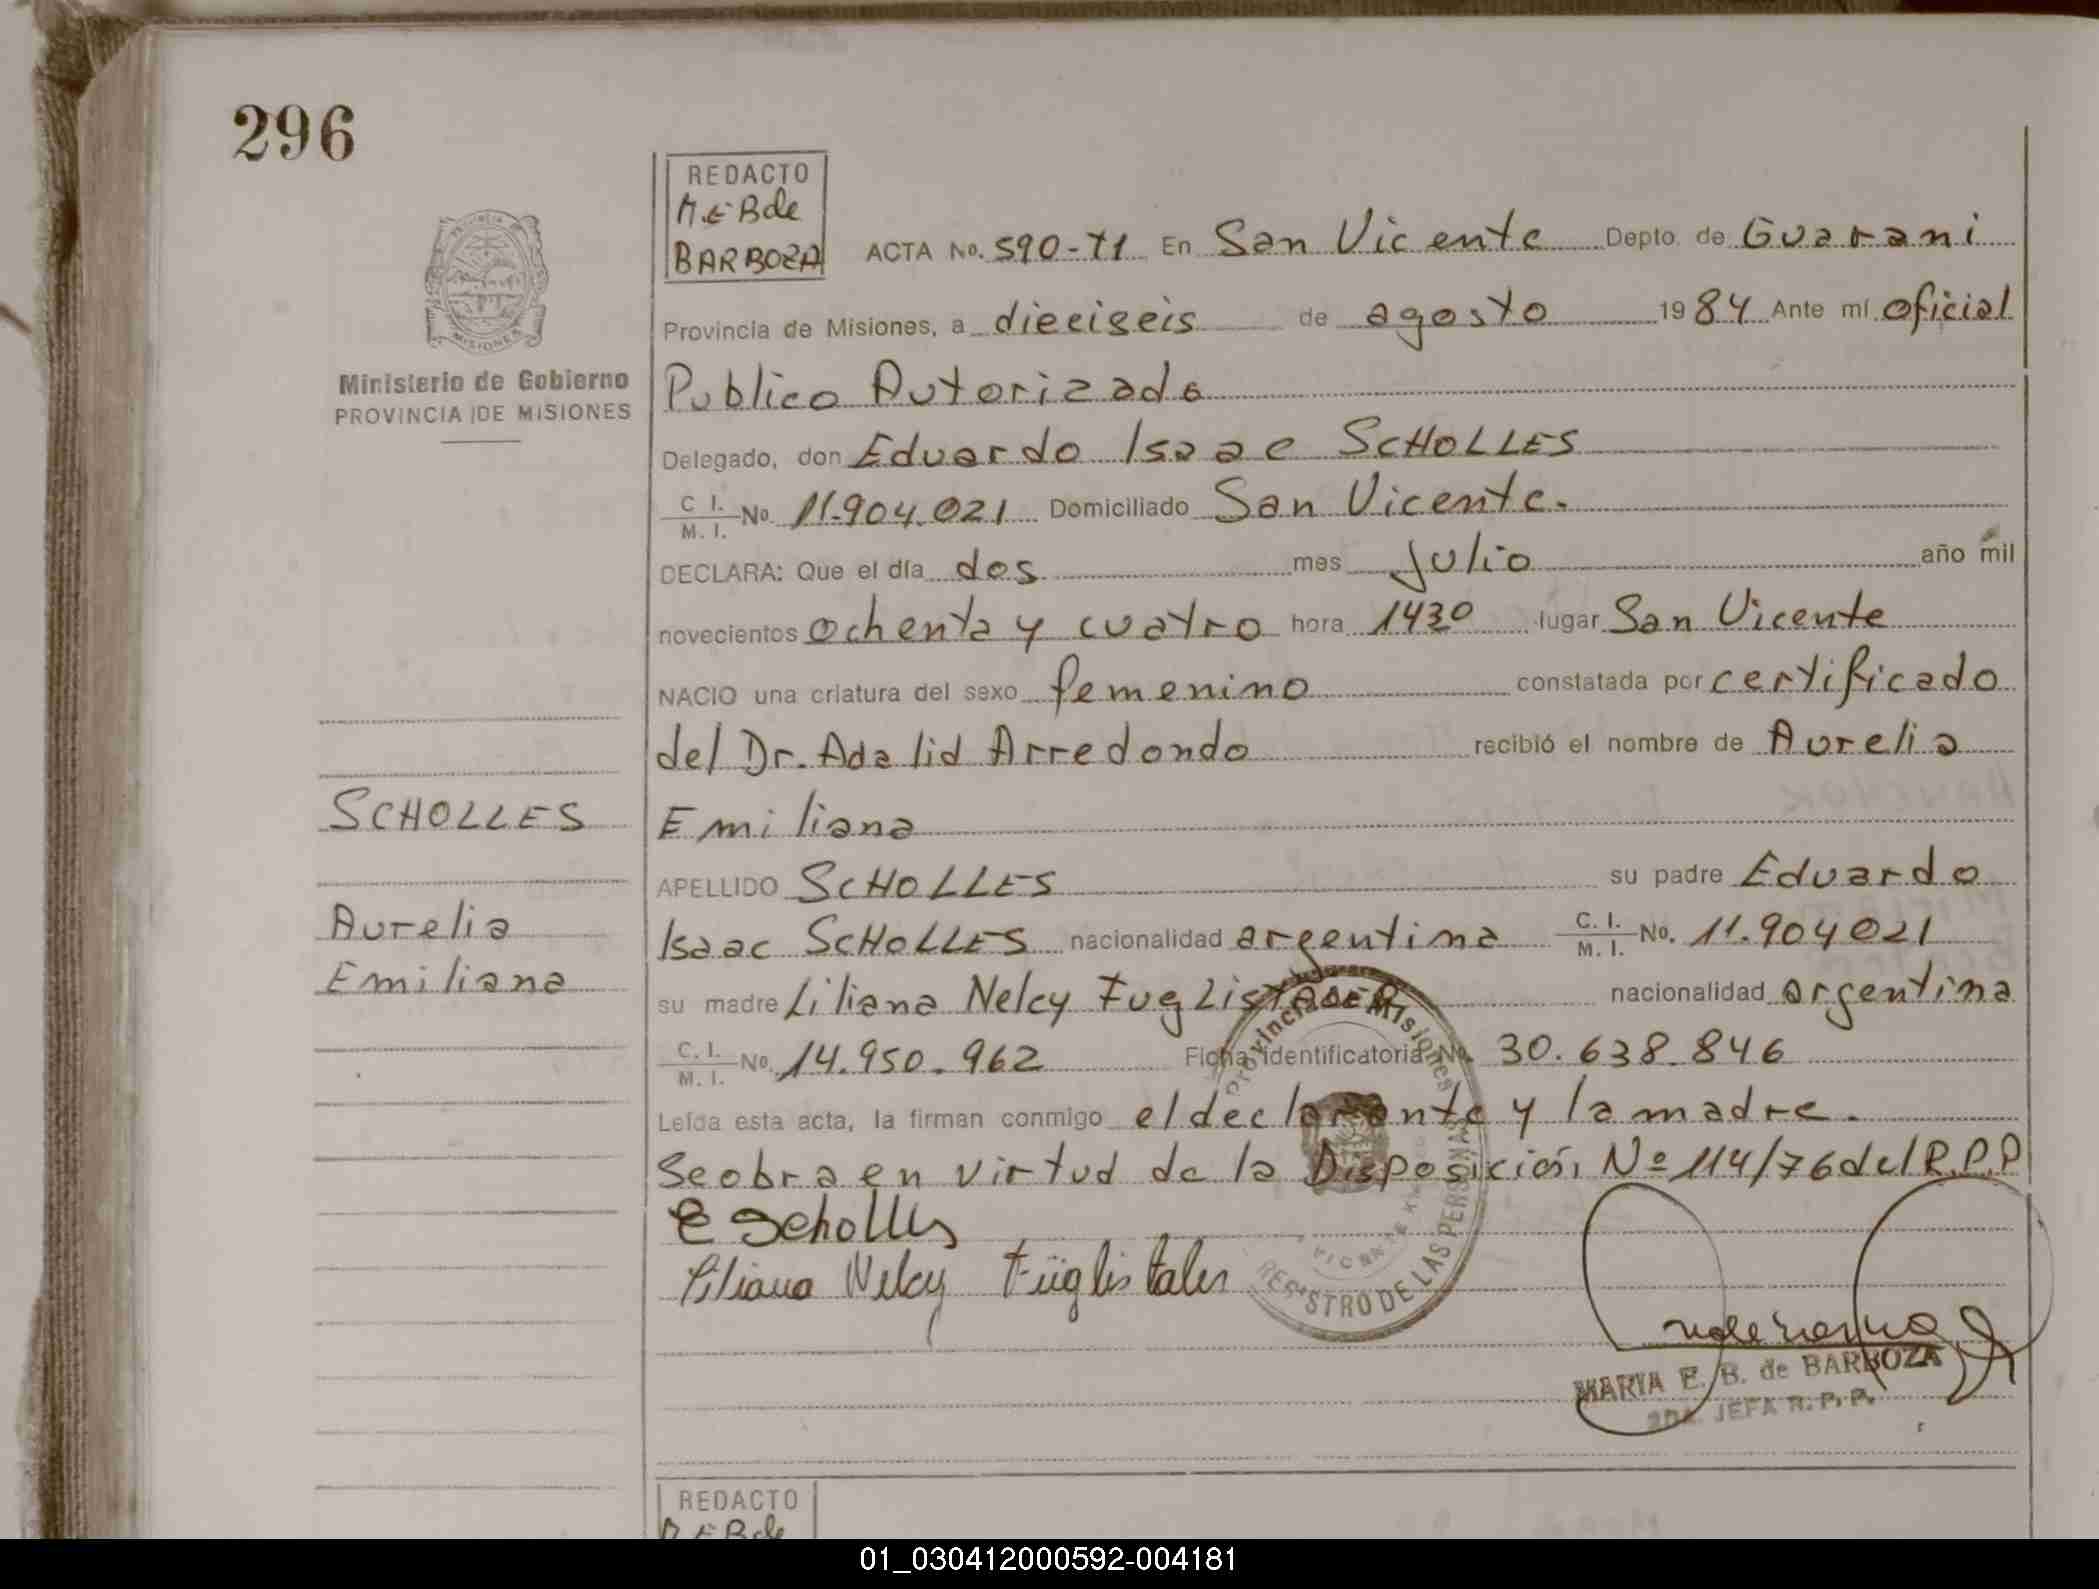 296
REDACTO
M.E Bde
BARBOZA
ACTA No. 590-T1 En San Vicente Depto. de Guarani
Provincia de Misiones, a dieciseis de agosto 1984 Ante mí oficial
Publico Autorizado
Delegado, don Eduardo Isaac SCHOLLES
C. I. M. I. No. 11.904.021 Domiciliado San Vicente.
DECLARA: Que el día dos mes Julio año mil
novecientos ochenta y cuatro hora 1430 lugar San Vicente
NACIO una criatura del sexo femenino constatada por certificado
del Dr. Adalid Arredondo recibió el nombre de Aurelia
Emiliana
APELLIDO SCHOLLES su padre Eduardo
Isaac SCHOLLES nacionalidad argentina C. I. M. I. No. 11.904021
su madre Liliana Nelcy FugLisTALER nacionalidad argentina
C. I. M. I. No. 14.950.962 Ficha identificatoria No. 30.638.846
Leída esta acta, la firman conmigo el declarante y la madre.
Se obra en virtud de la Disposición Nº 114/76 del R.P.P
E Scholles
Liliana Nelcy Füglistaler
Provincia de Misiones
REGISTRO DE LAS PERSONAS
MARIA E. B. de BARBOZA
JEFA R. P. P.
Ministerio de Gobierno
PROVINCIA DE MISIONES
SCHOLLES
Aurelia
Emiliana
REDACTO
M E Bde
01_030412000592-004181